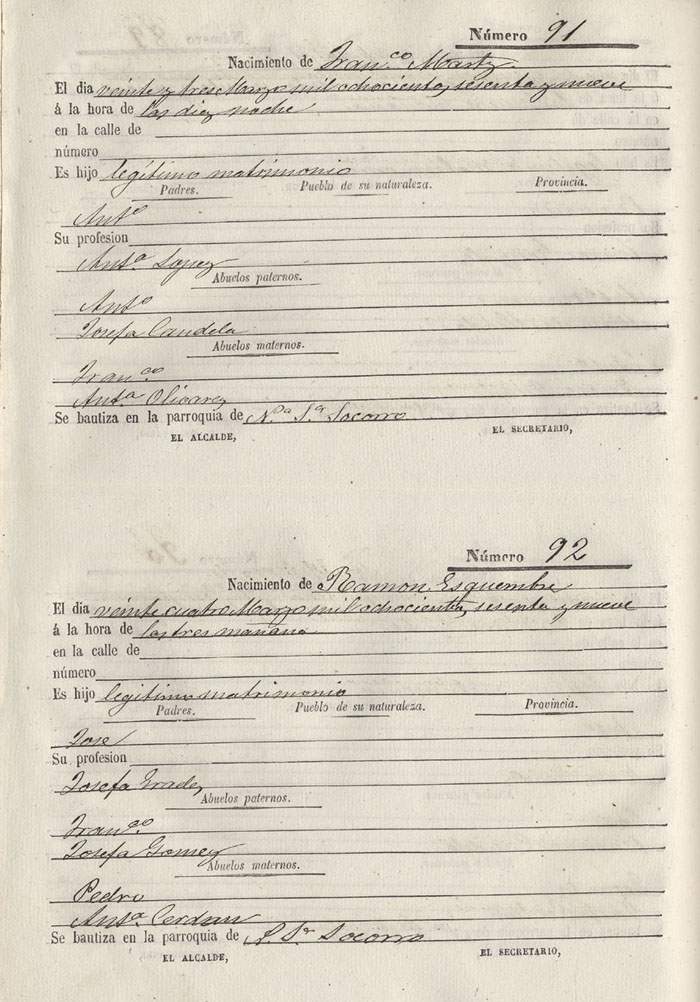 Número 91
Nacimiento de Fran.co Martz
El día veinte y tres Marzo mil ochocientos sesenta y nueve
á la hora de las diez noche
en la calle de
número
Es hijo legítimo matrimonio
Padres. Pueblo de su naturaleza. Provincia.
Ant.o
Su profesion
Ant.a Lopez
Abuelos paternos.
Ant.o
Josefa Candela
Abuelos maternos.
Fran.co
Ant.a Olivarez
Se bautiza en la parroquia de N.a S.a Socorro
EL ALCALDE, EL SECRETARIO,
Número 92
Nacimiento de Ramon Esquembre
El dia veinte cuatro Marzo mil ochocientos sesenta y nueve
á la hora de las tres mañana
en la calle de
número
Es hijo legitimo matrimonio
Padres. Pueblo de su naturaleza. Provincia.
Jose
Su profesion
Josefa
Abuelos paternos.
Fran.co
Josefa Gomez
Abuelos maternos.
Pedro
Ant.a Cerdan
Se bautiza en la parroquia de S.a Socorro
EL ALCALDE, EL SECRETARIO,